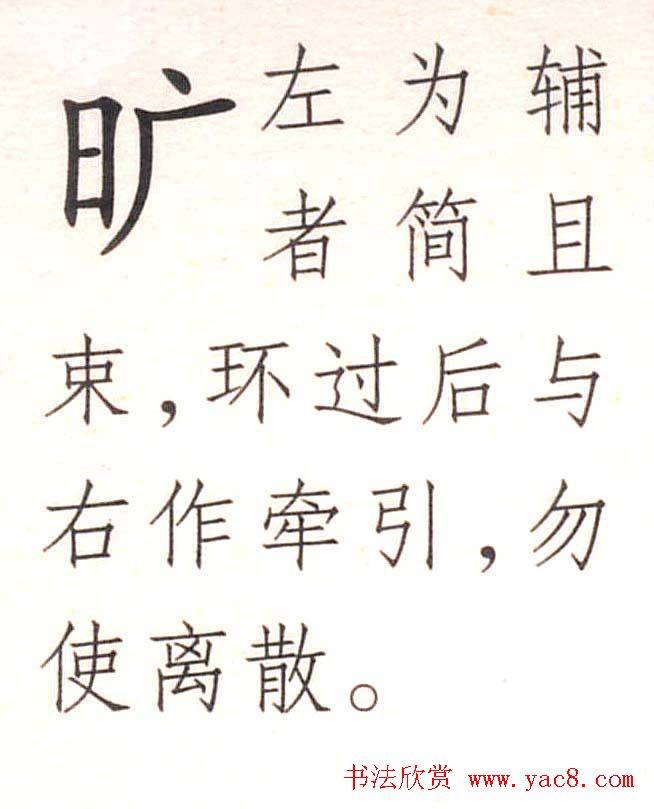 旷左为辅
者简且
束，环过后与
右作牵引，勿
使离散。
书法欣赏 www.yac8.com